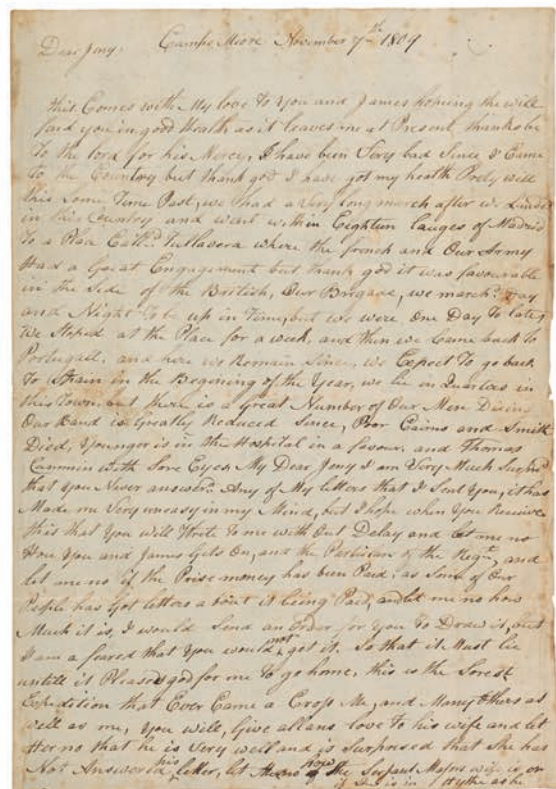 Dear Jony. Campo Miore November 7th 1809
this Comes with My love To You and James hoping the will
find you in good Health as it leaves me at Present, thanks be
To the lord for his Mercy, I have been Very bad Since I Came
To the Country but thank god I have got my health Prety well
this Some Time Past, we had a Very long march after we Landed
in this Country and went within Eighteen leauges of Madrid
To a Place Calld. Tallavera where the french and Our Army
Had a Great Engagement but thank god it was favourable
in the Side of the British, Our Brigade, we marchd. Day
and Night To be up in Time, but we were One Day To late,
We Stoped at the Place for a week, and then we Came back to
Portugall, and here we Remain Since, we Expect To go back
To Spain in the Begoning of the Year, we lie in Quarters in
this Town, but there is a Great Number of Our Men Dieing
Our Band is Greatly Reduced Since, Poor Cairns and Smith
Died, Younger is in the Hospital in a favour, and Thomas
Cummin with Sore Eyes My Dear Jony I am Very Much Surprisd
that You Never answerd. Any of My letters that I Sent You, it has
Made me Very uneasy in my Mind, but I hope when You Receive
this that You will Write To me with Out Delay and let me no
How You and James Gets On, and the Perticulars of the Regt, and
let me no if the Prise money has been Paid, as Some of Our
People has Got letters about it being Paid, and let me no how
Much it is, I would Send an Order for You To Draw it, but
I am a feared that You would not get it. So that it Must lie
untill it Pleases god for me To go home, this is the Sorest
Expedition that Ever Came a Cross Me, and Many Others as
well as me, You will, Give allans love To his wife and let
Her no that he is Very well and is Surprised that She has
Not Answered his letter, let me no how the Serjeant Majors wife is, or
if She is in Hythe as he